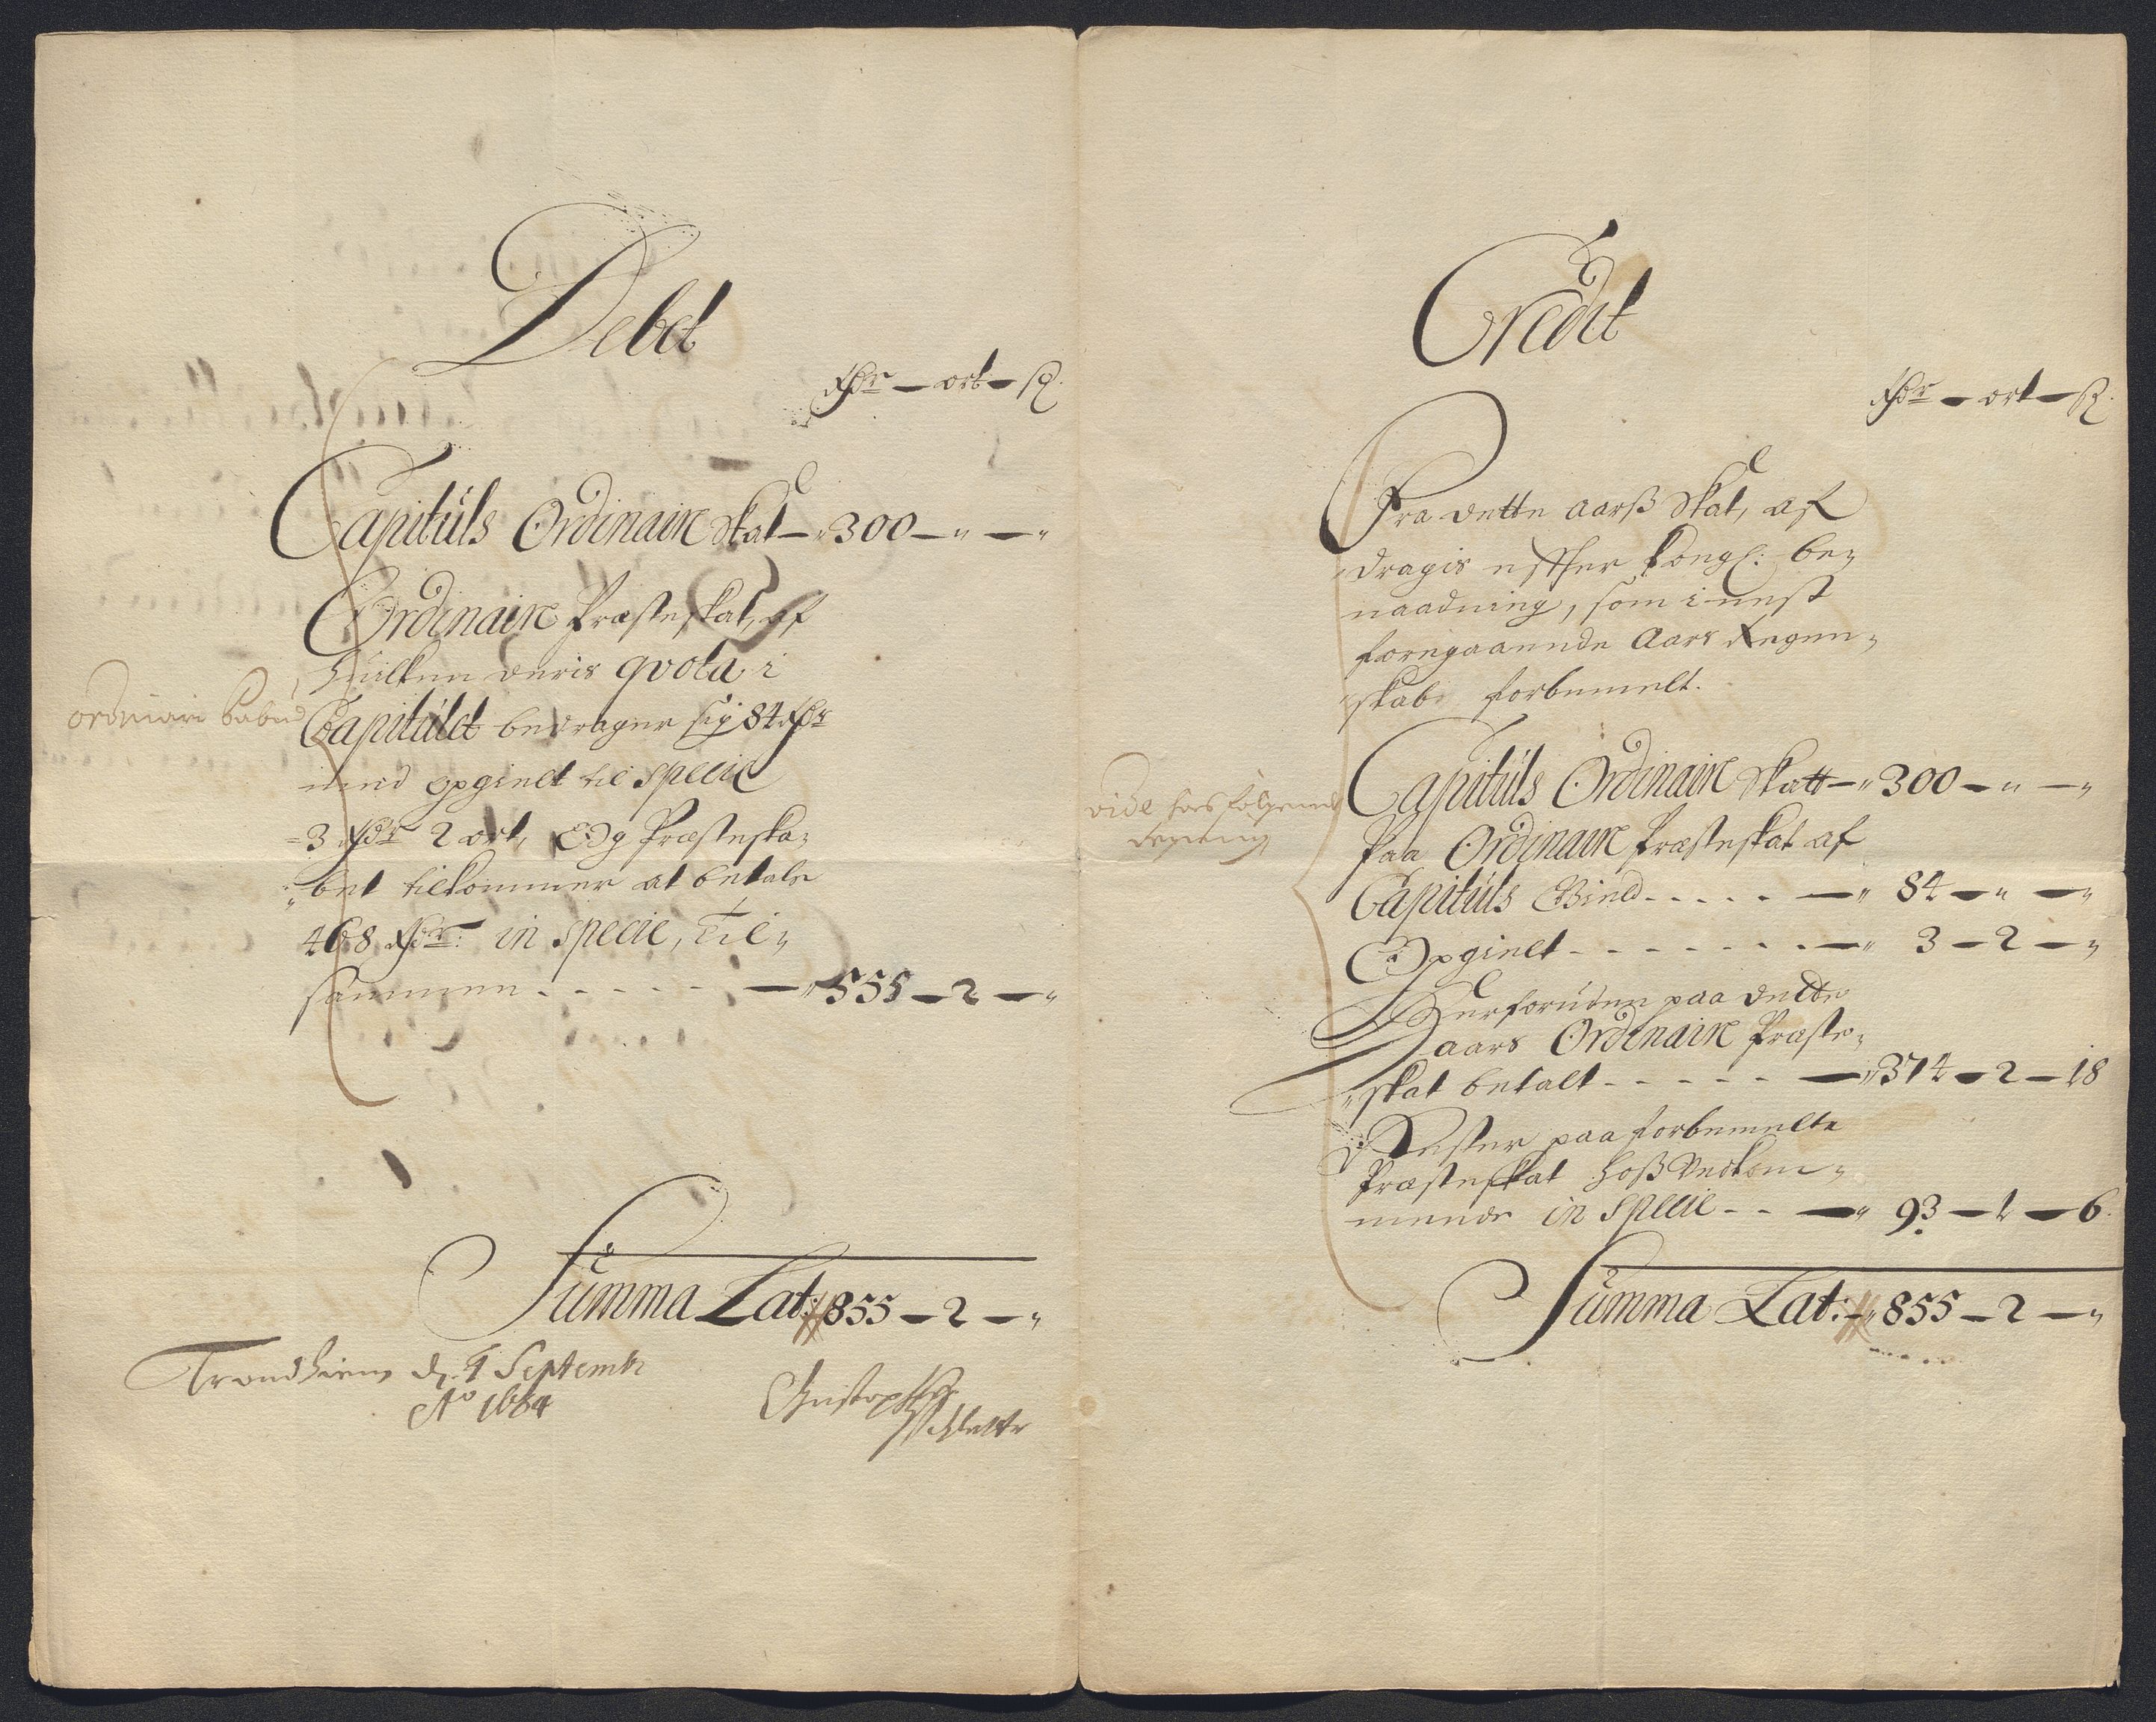 Debet
Rdr — ort — ß.
Capituls Ordinaire Skat — 300 — " — "
Ordinaire Præsteskat, af
huilken deris qvota i
Capitulet bedrager sig 84 Rdr
med opgielt til specie
3 Rdr 2 ort, Og Præsteska-
bet tilkommer at betale
468 Rdr: in specie, Til-
sammen . . . . . — 555 — 2 — "
ordinari
Summa Lat: 855 — 2 — "
Trondhiem d. 1 Septemb
Ao 1684
Christopher
Credit
Rdr — ort — ß.
Fra dette aarß Skat, af
dragis effter Kongl: be-
naadning, som i nest
foregaaende Aars Regen-
skab forbemelt.
Capituls Ordinaire Skatt — 300 — " — "
Paa Ordinaire Præsteskat af
Capituls Bind . . . . . — 84 — " — "
Opgielt . . . . . . . — 3 — 2 — "
Herforuden paa dette
aars Ordinaire Præste-
skat betalt . . . . . — 374 — 2 — 18
Rester paa forbemelte
Præsteskat hoß Vedkom-
mende in specie . . — 93 — 1 — 6.
vide hosfølgende
Summa Lat: — 855 — 2 — "